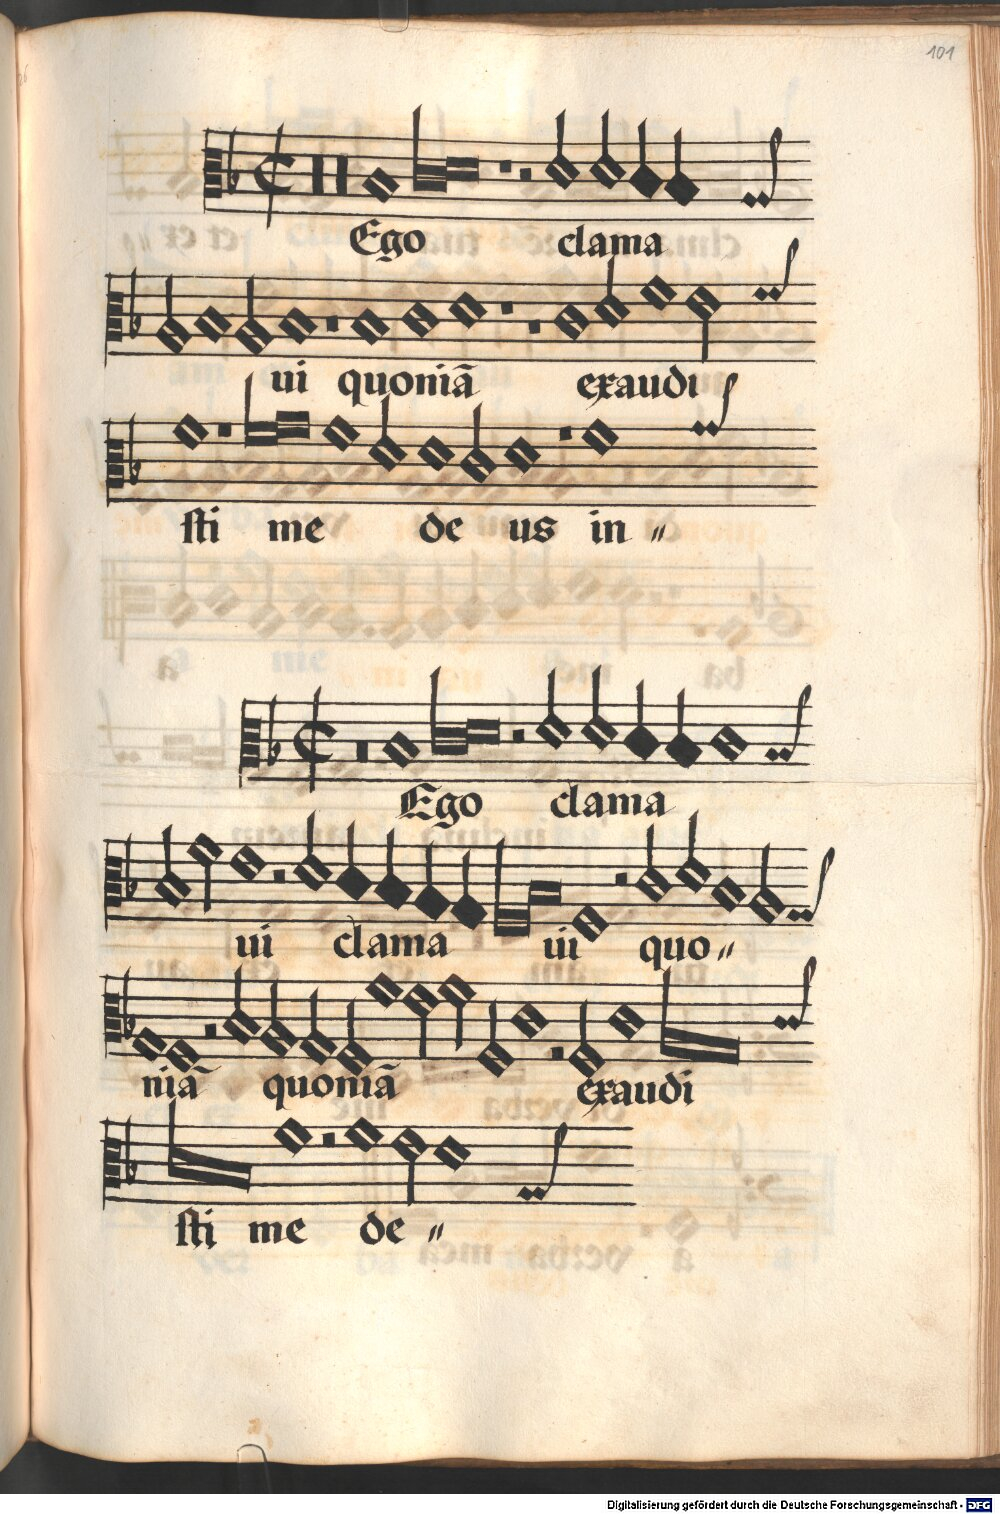 101
Ego clama
ui quoniā exaudi
sti me de us in〃
Ego clama
ui clama ui quo〃
niā quoniā exaudi
sti me de〃
Digitalisierung gefördert durch die Deutsche Forschungsgemeinschaft - DFG